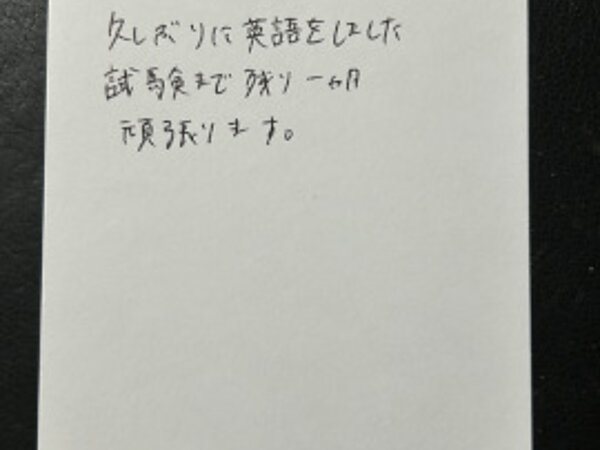 久しぶりに英語をしました
試験まで残り一ヶ月
頑張ります。